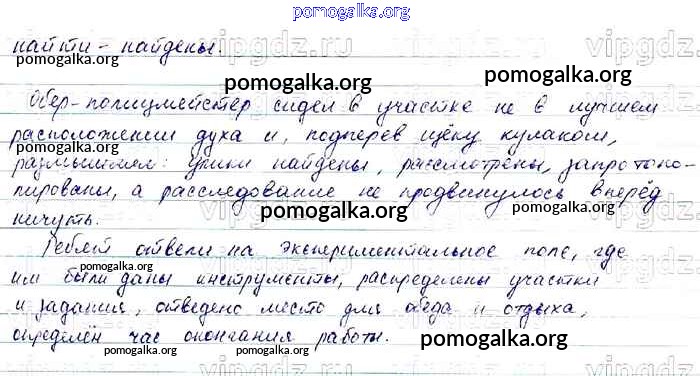 pomogalka.org
найти - найдены.
pomogalka.org
Обер-полицмейстер сидел в участке не в лучшем
pomogalka.org
расположении духа и, подперев щёку кулаком,
pomogalka.org
размышлял: улики найдены, рассмотрены, запротоко-
лированы, а расследование не продвинулось вперёд
pomogalka.org pomogalka.org
ничуть.
pomogalka.org
Ребят отвели на экспериментальное поле, где
pomogalka.org
им были даны инструменты, распределены участки
pomogalka.org
и задания, отведено место для обеда и отдыха,
определён час окончания работы.
pomogalka.org pomogalka.org pomogalka.org